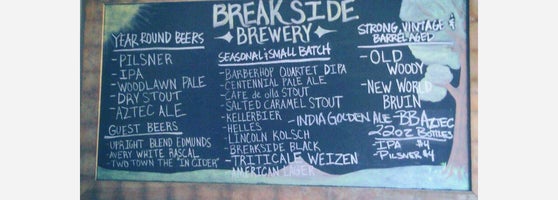 BREAKSIDE
BREWERY
YEAR ROUND BEERS
- PILSNER
- IPA
- WOODLAWN PALE
- DRY STOUT
- AZTEC ALE
GUEST BEERS
- UPRIGHT BLEND EDMUNDS
- AVERY WHITE RASCAL
- TWO TOWN THE "INCIDER"
SEASONAL & SMALL BATCH
- BARBERHOP QUARTET DIPA
- CENTENNIAL PALE ALE
- CAFE de olla STOUT
- SALTED CARAMEL STOUT
- KELLERBIER
- INDIA GOLDEN ALE
- HELLES
- LINCOLN KOLSCH
- BREAKSIDE BLACK
- TRITICALE WEIZEN
- AMERICAN LAGER
STRONG, VINTAGE &
BARREL AGED
- OLD
WOODY
- NEW WORLD
BRUIN
- BB AZTEC
22oz BOTTLES
- IPA $4
- PILSNER $4